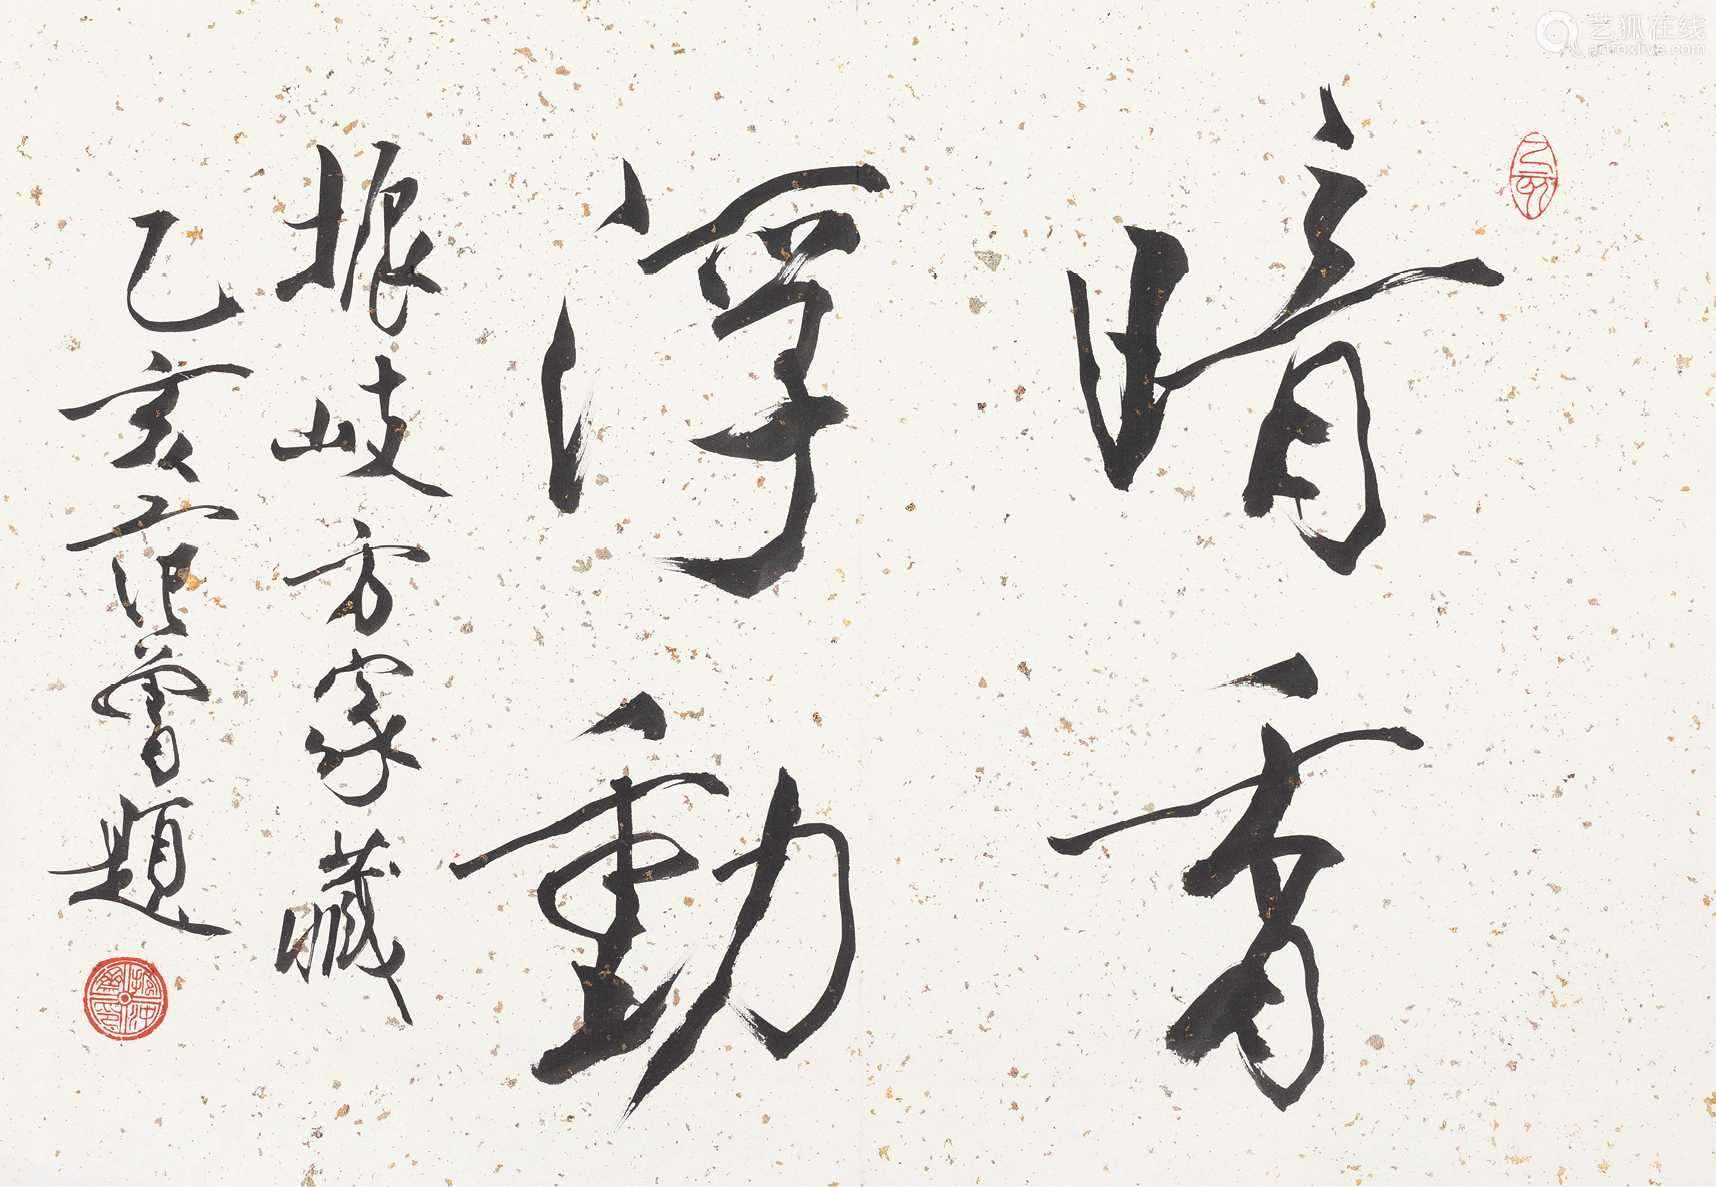 暗香
浮動
振岐方家藏
乙亥范曾題
艺狐在线
artfoxlive.com